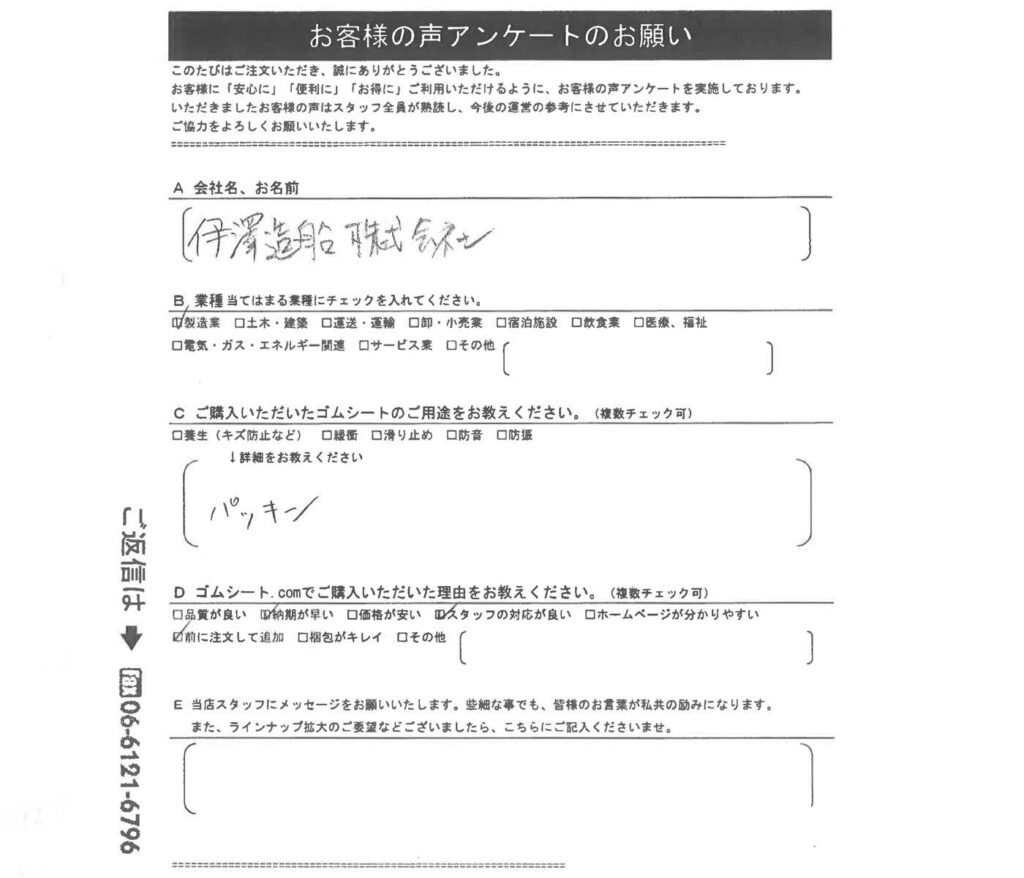 お客様の声アンケートのお願い
このたびはご注文いただき、誠にありがとうございました。
お客様に「安心に」「便利に」「お得に」ご利用いただけるように、お客様の声アンケートを実施しております。
いただきましたお客様の声はスタッフ全員が熟読し、今後の運営の参考にさせていただきます。
ご協力をよろしくお願いいたします。
A 会社名、お名前
伊澤造船株式会社
B 業種当てはまる業種にチェックを入れてください。
☑製造業 □土木・建築 □運送・運輸 □卸・小売業 □宿泊施設 □飲食業 □医療、福祉
□電気・ガス・エネルギー関連 □サービス業 □その他
C ご購入いただいたゴムシートのご用途をお教えください。（複数チェック可）
□養生（キズ防止など） □緩衝 □滑り止め □防音 □防振
↓詳細をお教えください
パッキン
D ゴムシート.comでご購入いただいた理由をお教えください。（複数チェック可）
□品質が良い ☑納期が早い □価格が安い ☑スタッフの対応が良い □ホームページが分かりやすい
☑前に注文して追加 □梱包がキレイ □その他
E 当店スタッフにメッセージをお願いいたします。些細な事でも、皆様のお言葉が私共の励みになります。
また、ラインナップ拡大のご要望などございましたら、こちらにご記入くださいませ。
ご返信は ➡ fax 06-6121-6796